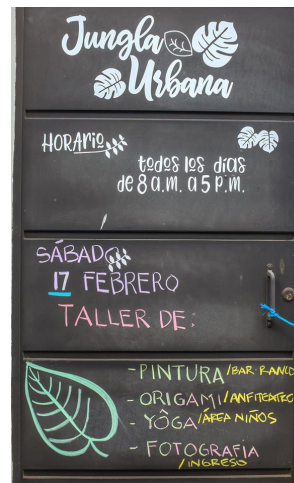 Jungla
Urbana
HORArio
todos los días
de 8 a.m. a 5 p.m.
SÁBADO
17 FEBRERO
TALLER DE:
- PINTURA /BAR-RANCO
- ORIGAMI /ANFITEATRO
- YÔGA /ÁREA NIÑOS
- FOTOGRAFíA
/INGRESO